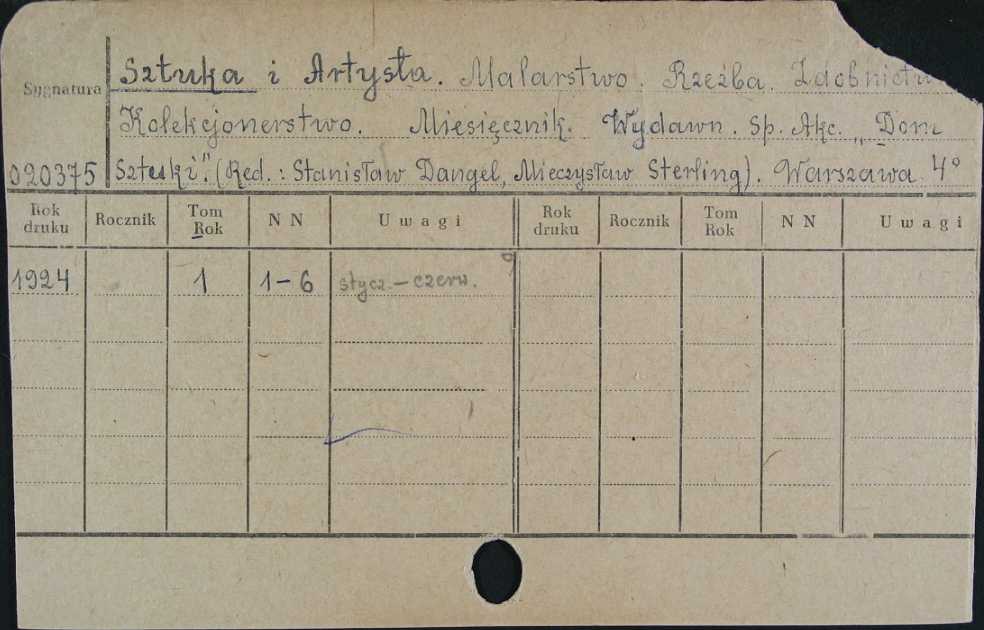 Sztuka i Artysta. Malarstwo. Rzeźba. Zdobnictw
Sygnatura
Kolekcjonerstwo. Miesięcznik. Wydawn. Sp. Akc. „Dom
020375 Sztuki". (Red.: Stanisław Dangel, Mieczysław Sterling). Warszawa 4°
Rok druku Rocznik Tom Rok N N Uwagi Rok druku Rocznik Tom Rok N N Uwagi
1924 1 1-6 stycz.-czerw.